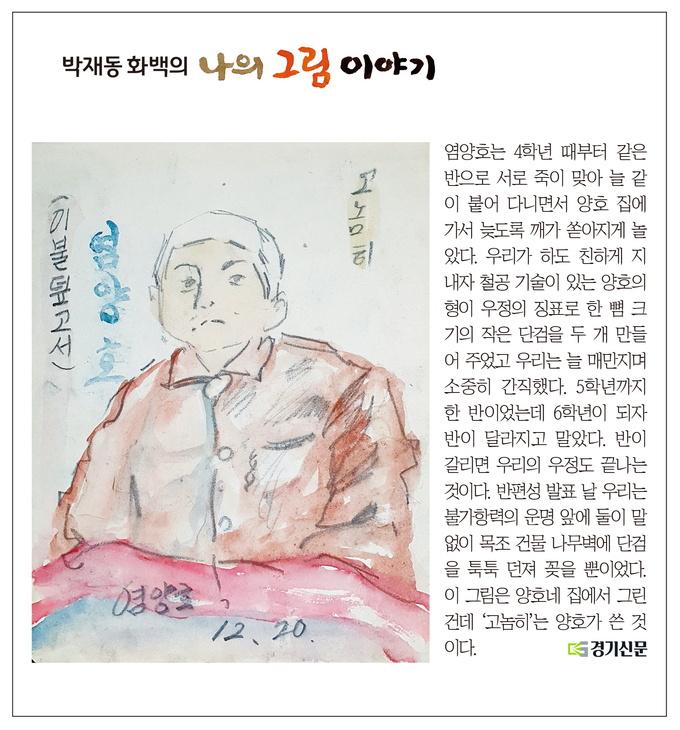 박재동 화백의 나의 그림 이야기
고놈히
(이불 덮고서)
염양호
염양호
12. 20.
염양호는 4학년 때부터 같은
반으로 서로 죽이 맞아 늘 같
이 붙어 다니면서 양호 집에
가서 늦도록 깨가 쏟아지게 놀
았다. 우리가 하도 친하게 지
내자 철공 기술이 있는 양호의
형이 우정의 징표로 한 뼘 크
기의 작은 단검을 두 개 만들
어 주었고 우리는 늘 매만지며
소중히 간직했다. 5학년까지
한 반이었는데 6학년이 되자
반이 달라지고 말았다. 반이
갈리면 우리의 우정도 끝나는
것이다. 반편성 발표 날 우리는
불가항력의 운명 앞에 둘이 말
없이 목조 건물 나무벽에 단검
을 툭툭 던져 꽂을 뿐이었다.
이 그림은 양호네 집에서 그린
건데 ‘고놈히’는 양호가 쓴 것
이다.
경기신문